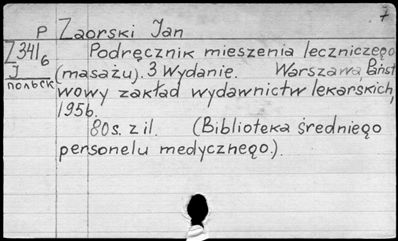 7
P Zaorski Jan
Z341/6 Podręcznik mieszenia leczniczego
I (masażu). 3 Wydanie. Warszawa, Państ
польск wowy zakład wydawnictw lekarskich,
1956.
80 s. z il. (Biblioteka średniego
personelu medycznego.).